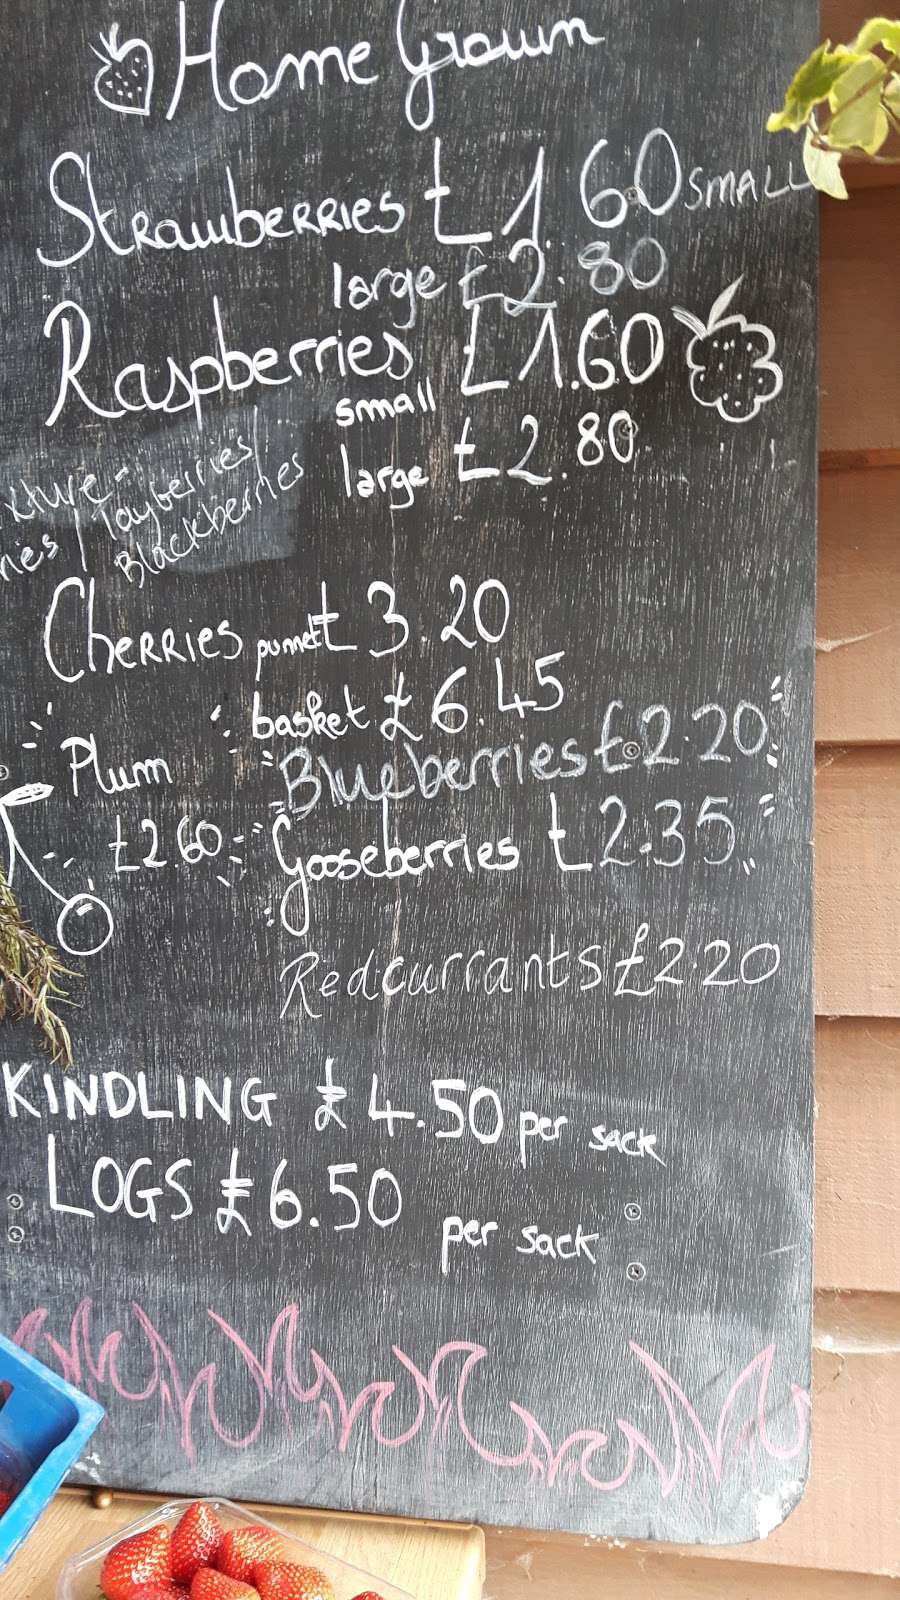 Home Grown
Strawberries £1.60 SMALL
large £2.80
Raspberries £1.60
small
large £2.80
Tayberries/
Blackberries
Cherries punnet £3.20
basket £6.45
Plum
£2.60
Blueberries £2.20
Gooseberries £2.35
Redcurrants £2.20
KINDLING £4.50 per sack
LOGS £6.50
per sack